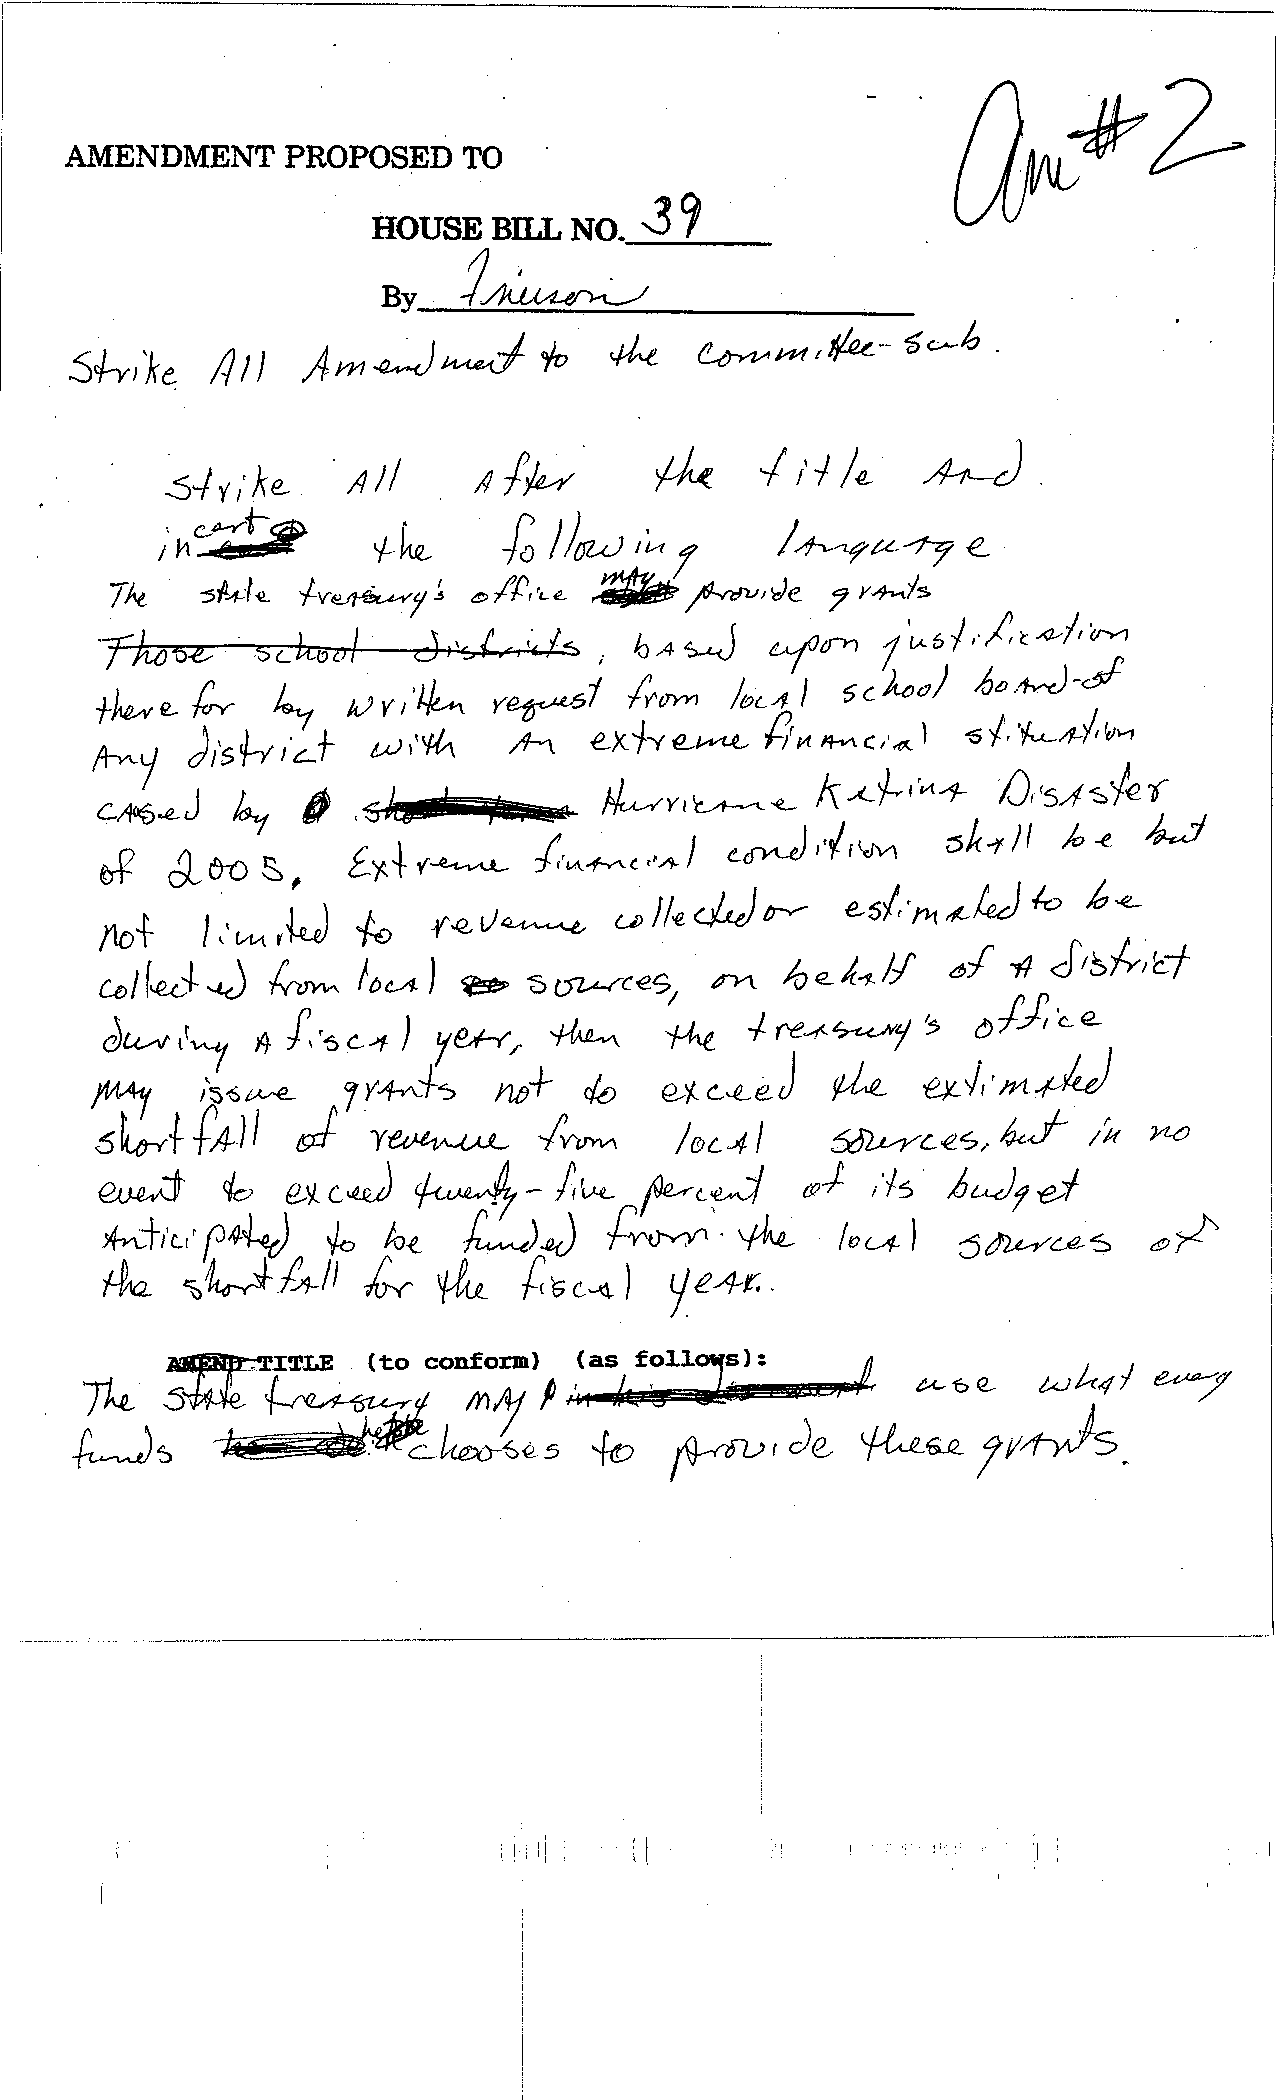 Am # 2
AMENDMENT PROPOSED TO
HOUSE BILL NO. 39
By Frierson
Strike All Amendment to the committee-sub.
Strike All After the title And
incert the following language
The state treasury's office may provide grants
Those school districts, based upon justification
therefor by written request from local school board of
Any district with An extreme financial stituation
caused by Hurricane Katrina Disaster
of 2005. Extreme financial condition shall be but
not limited to revenue collected or estimated to be
collected from local sources, on behalf of A district
during A fiscal year, then the treasury's office
may issue grants not to exceed the extimated
shortfall of revenue from local sources, but in no
event to exceed twenty-five percent of its budget
Anticipated to be funded from the local sources of
the shortfall for the fiscal year.
AMEND TITLE (to conform) (as follows):
The State treasury may use what every
funds chooses to provide these grants.